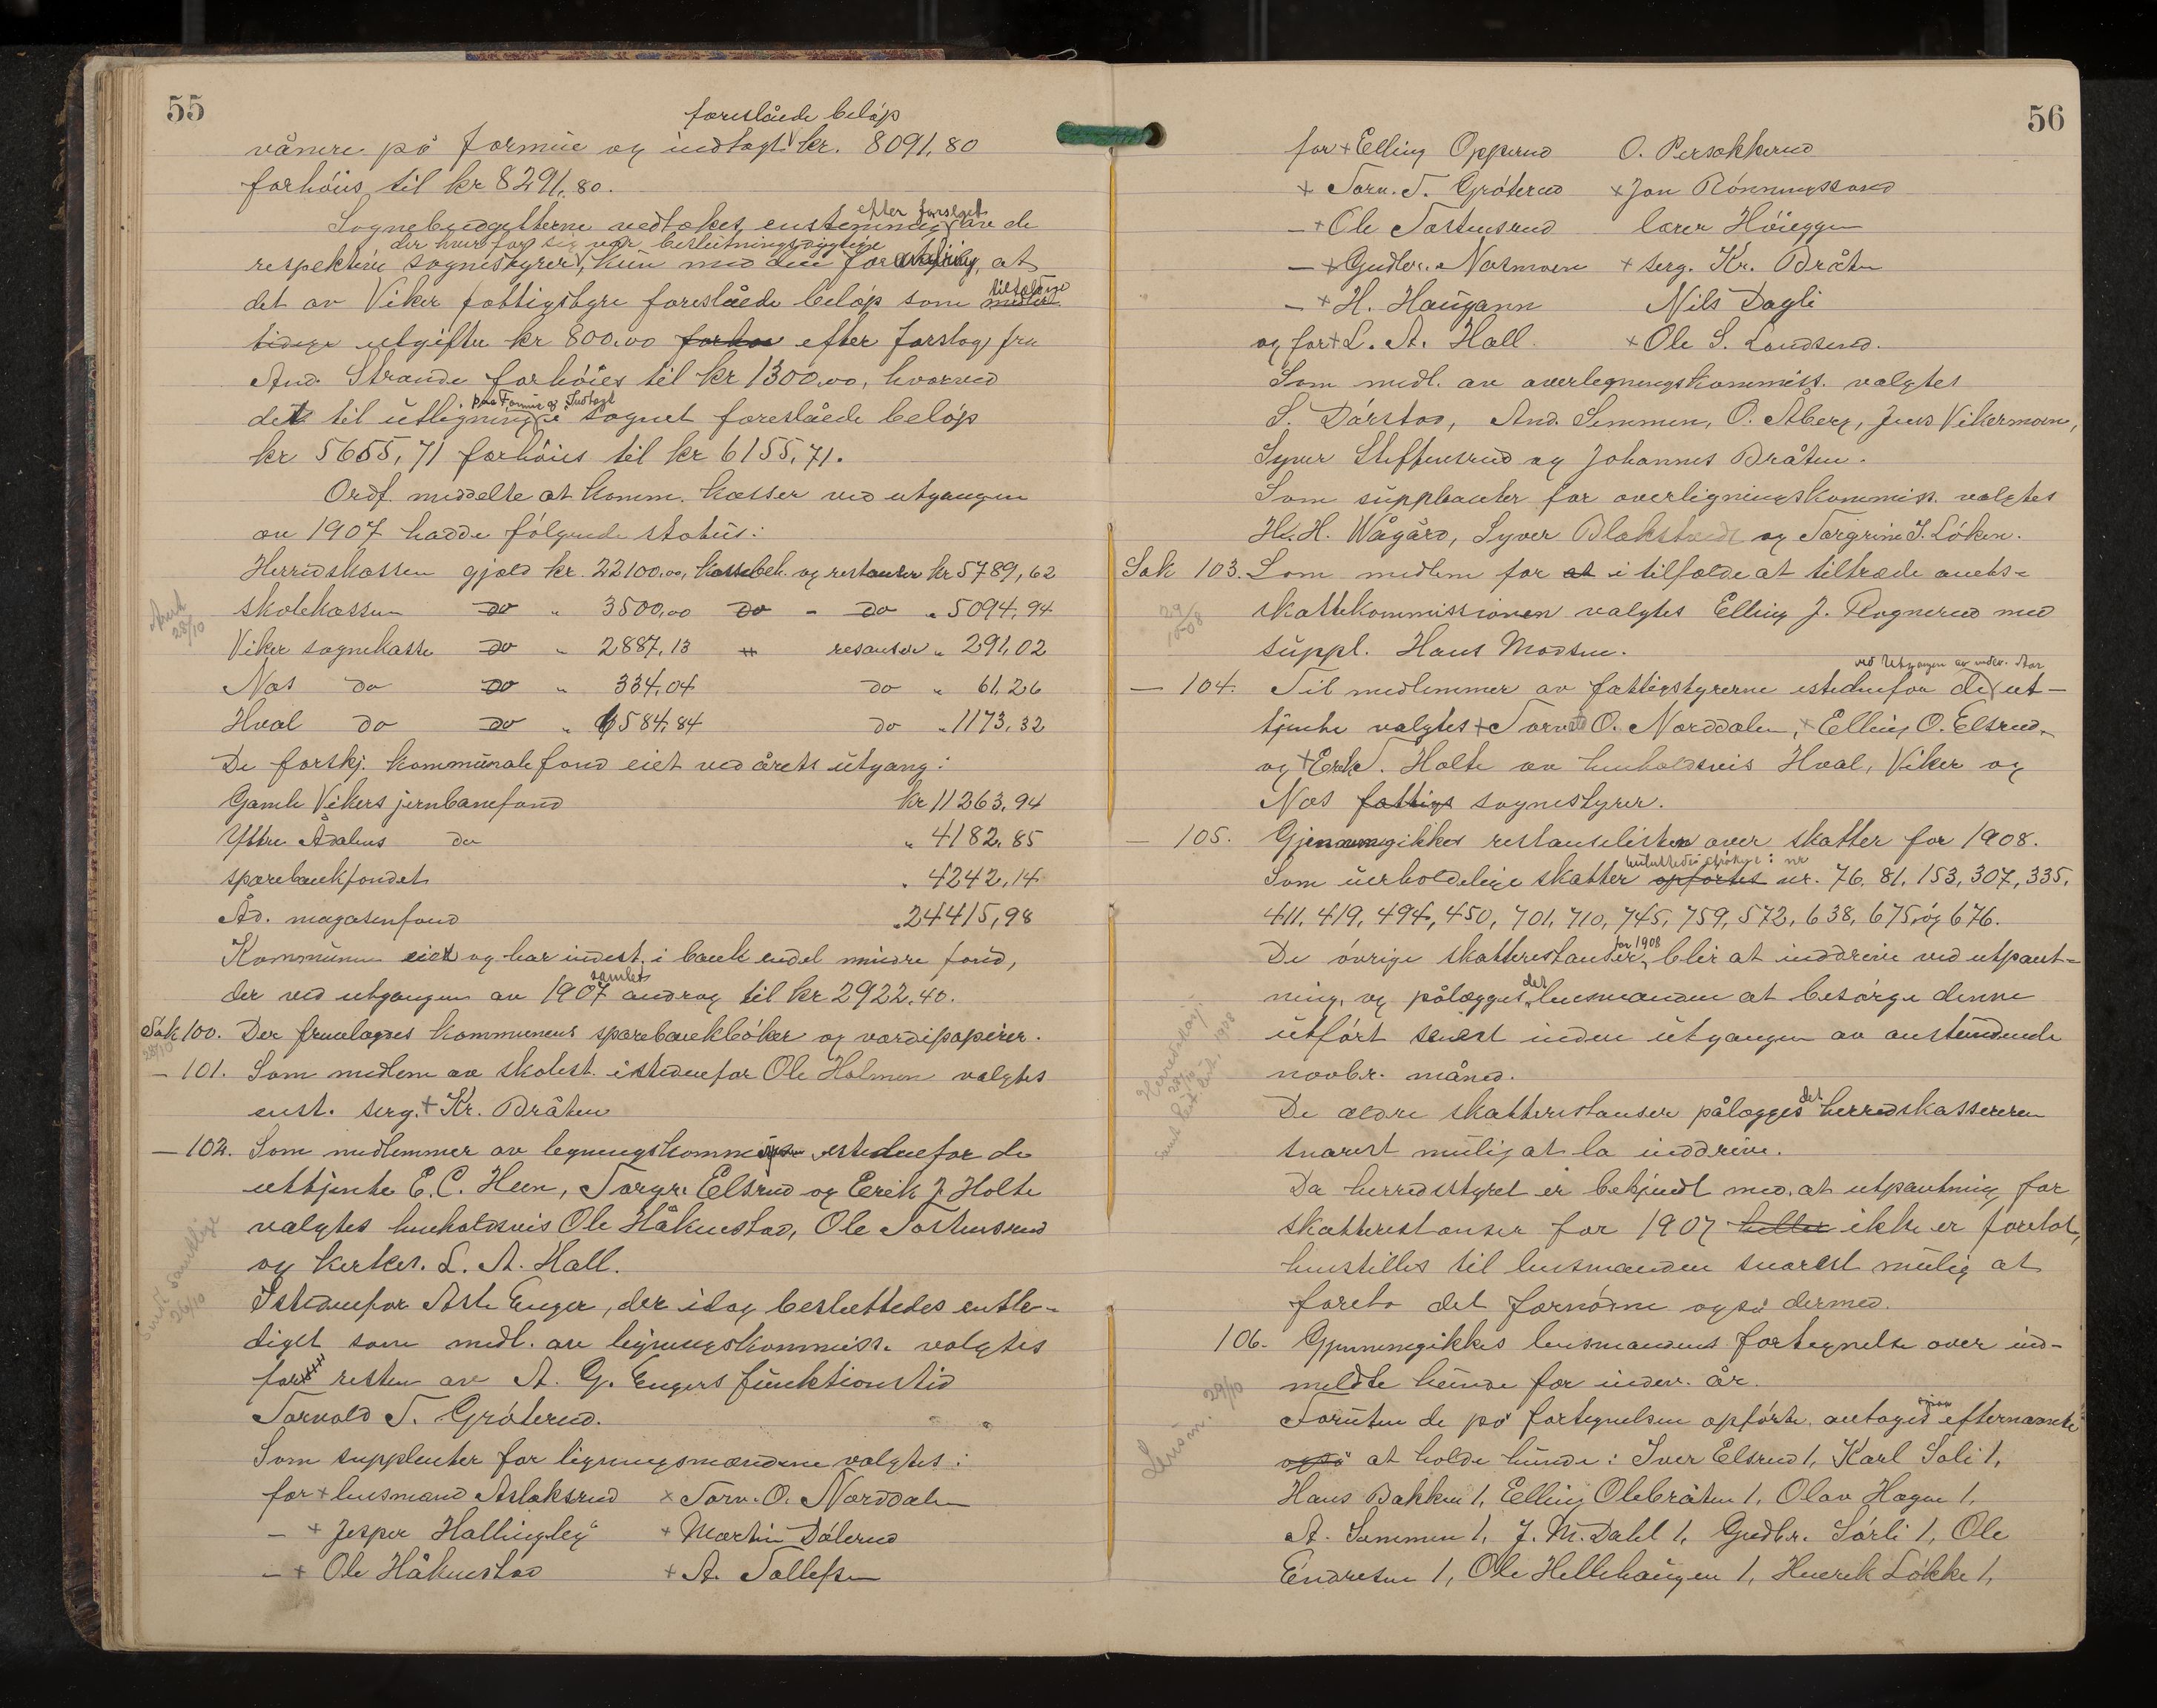 55
foreslåede beløp
vånere på formue og indtægt kr. 8091,80
forhøies til kr 8291,80.
efter forslaget
Sognebudgetterne vedtokes enstemmig av de
der hver for sig var beslutningsdygtige
respektive sognestyrer, kun med den forandring, at
det av Viker fattigstyre foreslåede beløp som
utgifter kr 800,00 efter forslag fra
And. Strande forhøies til kr 1300,00, hvorved
paa Formue og Indtægt
det til utligning i sognet foreslåede beløp
kr 5655,71 forhøies til kr 6155,71.
Ordf. meddelte at komm. kasser ved utgangen
av 1907 hadde følgende status:
Herredskassen gjæld kr. 22100,00, kassebeh. og restanser kr 5789,62
skolekassen do " 3500,00 do - do " 5094,94
Viker sognekasse do " 2887,13 " resanser " 291,02
Næs do do " 334,04 do " 61,26
Hval do do " 6584,84 do " 1173,32
De forskj. kommunale fond eiet ved årets utgang:
Gamle Vikers jernbanefond kr 11263,94
Yttre Ådalens do " 4182,85
sparebankfondet " 4242,14
Åd. magasinfond " 24415,98
Kommunen eiet og har indest. i bank endel mindre fond,
samlet
der ved utgangen av 1907 androg til kr 2922,40.
Sak 100. Der fremlagdes kommunens sparebankbøker og værdipapirer.
28/10
- 101. Som medlem av skolest. istedenfor Ole Holmen valgtes
enst. serg. + Kr. Bråten
- 102. Som medlemmer av legningskommissjon istedenfor de
uttjente E. C. Heen, Torgr. Elsrud og Erik J. Holte
valgtes henholdsvis Ole Håkenstad, Ole Tostensrud
og kirkes. L. A. Hall.
Istedenfor Asle Enger, der idag besluttedes entle-
diget som medl. av legningskommiss. valgtes
for resten av A. G. Engers funktionstid
Torvald T. Grøterud.
Som supplenter for ligningsmændene valgtes:
for + lensmand Aslaksrud × Torv. O. Norddalen
- + Jesper Hallingby + Martin Dølerud
- + Ole Håkenstad + A. Tollefsen
56
for + Elling Opperud O. Persokkerud
+ Torv. T. Grøterud + Jon Rønningssand
- + Ole Tostensrud lærer Høieggen
- + Gudbr. Næsmoen + serg. Kr. Bråten
- + H. Haugann Nils Dagli
og for + L. A. Hall. + Ole S. Landsend.
Som medl. av overlegningskommiss. valgtes
S. Dørstad, And. Semmen, O. Åberg, Jens Vikermoen,
Syver Steffensrud og Johannes Bråten.
Som supplenter for overligningskommiss. valgtes
H. H. Wågård, Syver Blakstvedt og Torgrim T. Løken.
Sak 103. Som medlem for at i tilfælde at tiltræde amts-
29/10-08
skattekommissionen valgtes Elling J. Rognerud med
suppl. Hans Madsen.
ved Utgangen av indev. Aar
- 104. Til medlemmer av fattigstyrerne istedenfor de ut-
tjente valgtes + Torvald O. Norddalen, + Elling O. Elsrud,
og + Erik T. Holte av henholdsvis Hval, Viker og
Næs fattigs sognestyrer.
- 105. Gjennemgikkes restanselisten over skatter for 1908.
besluttedes strøket: nr
Som uerholdelige skatter opførtes nr. 76, 81, 153, 307, 335,
411, 419, 494, 450, 701, 710, 745, 759, 572, 638, 675 og 676.
for 1908
De øvrige skatterestanser, blir at inddrive ved utpant-
det
ning, og pålægges lensmanden at besørge denne
utført senest inden utgangen av anstundende
novbr. måned.
det
De ældre skatterestanser pålægges herredskassereren
snarest mulig at la inddrive.
Da herredstyret er bekjendt med, at utpantning for
skatterestanser for 1907 heller ikke er foretat,
henstilles til lensmanden snarest mulig at
foreta det fornødne også dermed.
106. Gjennemgikkes lensmandens fortegnelse over ind-
meldte hunde for indev. år.
Lensm. 29/10
Foruten de på fortegnelsen opførte antages efternævnte
også at holde hunde: Iver Elsrud 1, Karl Soli 1,
Hans Bakken 1, Elling Olebråten 1, Olav Hagen 1,
A. Semmen 1, J. M. Dahl 1, Gudbr. Sørli 1, Ole
Endresen 1, Ole Hellehaugen 1, Henrik Løkke 1,